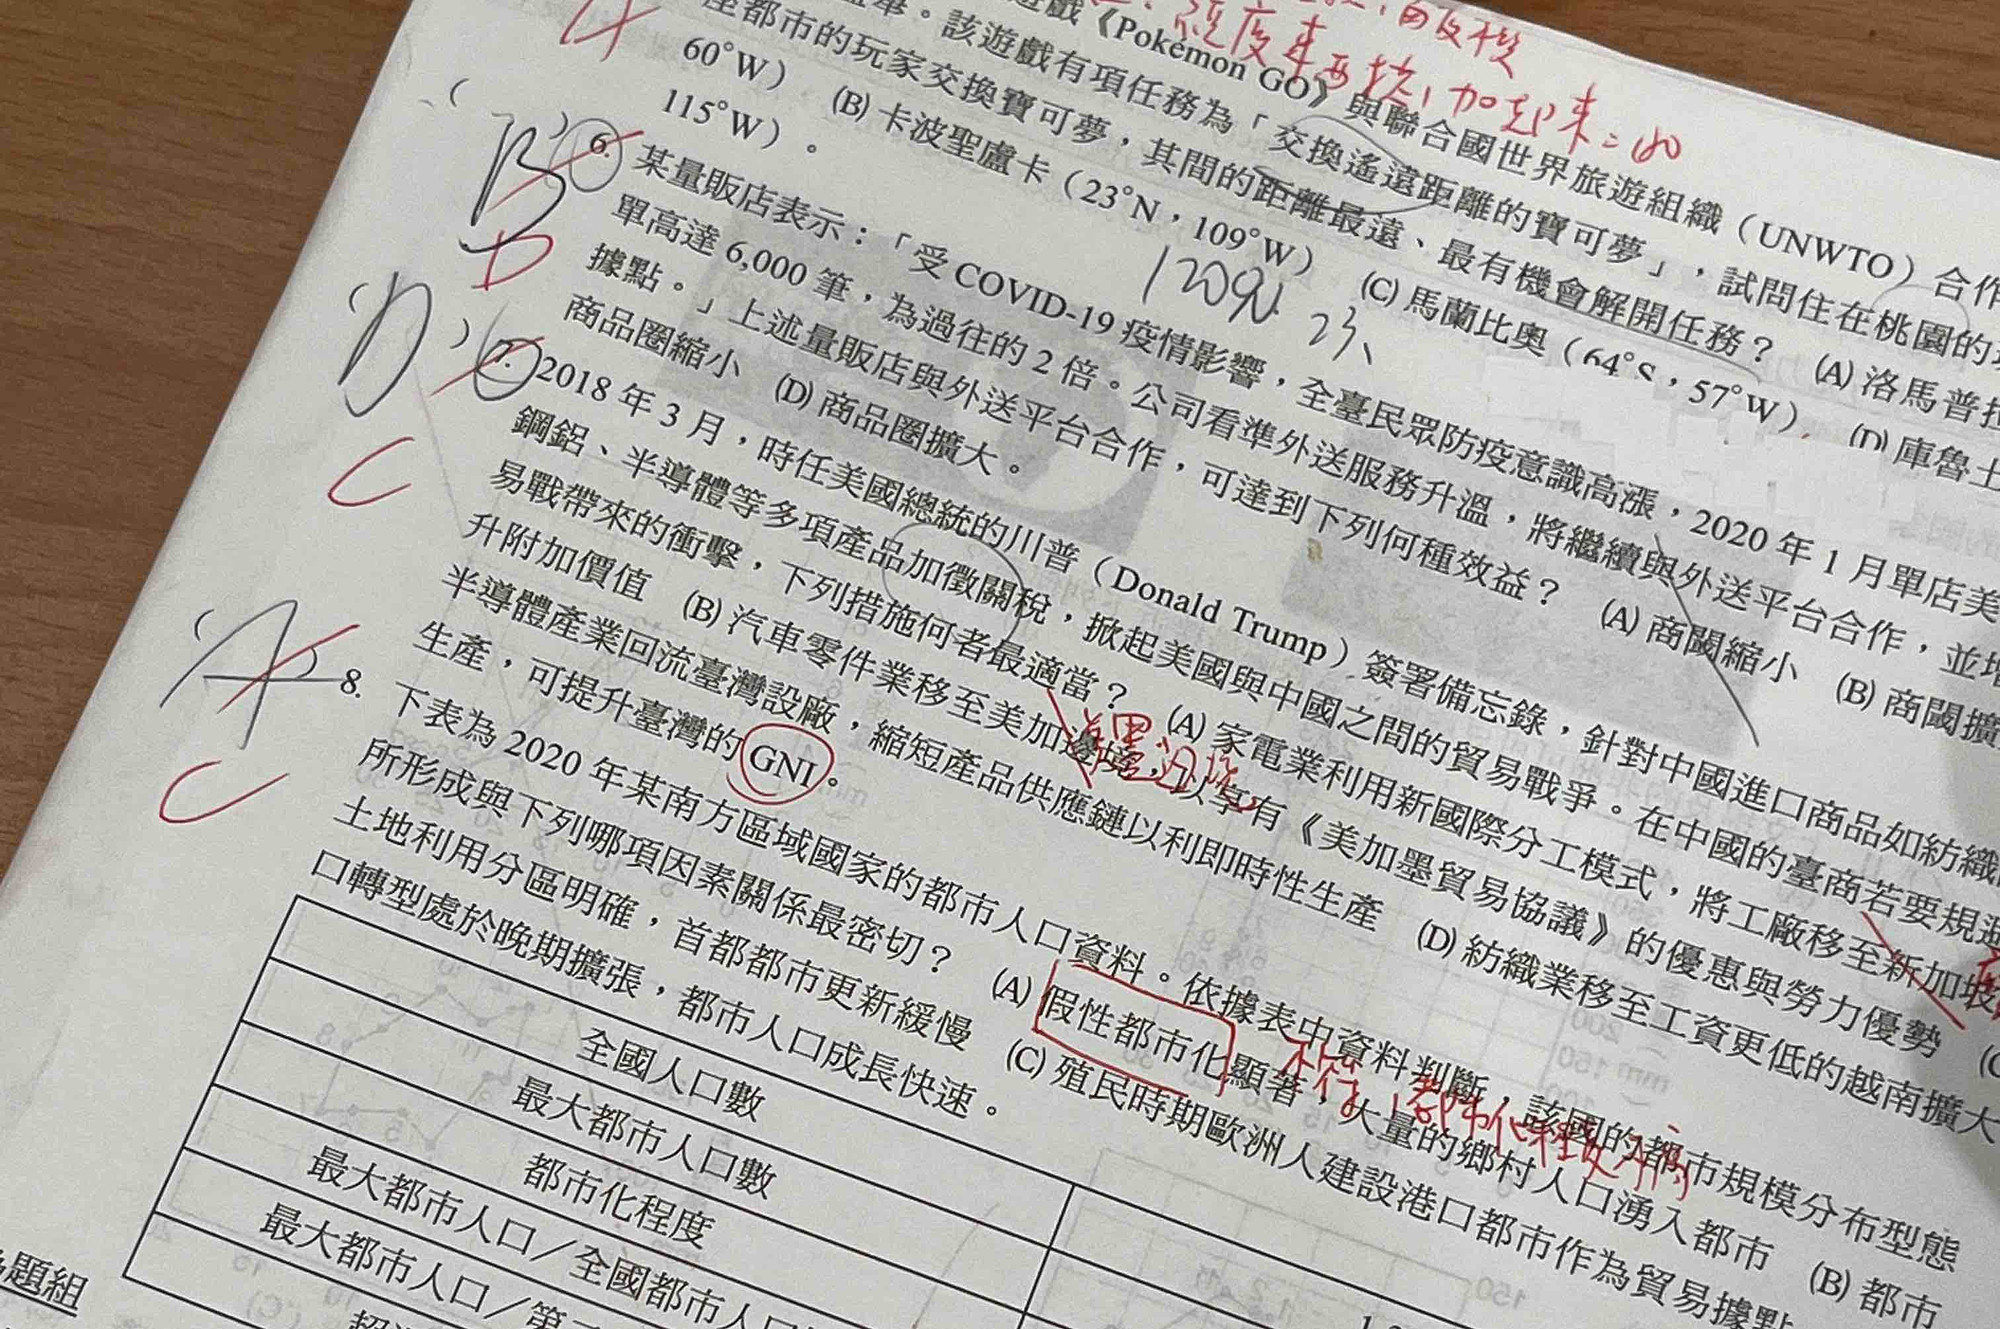 經度東西換,加起來=180
遊戲《Pokémon GO》與聯合國世界旅遊組織(UNWTO)合作
該遊戲有項任務為「交換遙遠距離的寶可夢」,試問住在桃園的
座都市的玩家交換寶可夢,其間的距離最遠、最有機會解開任務? (A) 洛馬普
60°W) (B) 卡波聖盧卡(23°N,109°W) (C) 馬蘭比奧(64°S,57°W) (D) 庫魯
115°W)。
120°E
23°N
(B) 6. 某量販店表示:「受 COVID-19 疫情影響,全臺民眾防疫意識高漲,2020 年 1 月單店美
D
單高達 6,000 筆,為過往的 2 倍。公司看準外送服務升溫,將繼續與外送平台合作,並增
據點。」上述量販店與外送平台合作,可達到下列何種效益? (A) 商閾縮小 (B) 商閾擴
商品圈縮小 (D) 商品圈擴大。
(D) 7. 2018 年 3 月,時任美國總統的川普(Donald Trump)簽署備忘錄,針對中國進口商品如紡織
C
鋼鋁、半導體等多項產品加徵關稅,掀起美國與中國之間的貿易戰爭。在中國的臺商若要規避
易戰帶來的衝擊,下列措施何者最適當? (A) 家電業利用新國際分工模式,將工廠移至新加坡
升附加價值 (B) 汽車零件業移至美加邊境,以享有《美加墨貿易協議》的優惠與勞力優勢 (C
美墨邊境
半導體產業回流臺灣設廠,縮短產品供應鏈以利即時性生產 (D) 紡織業移至工資更低的越南擴大
生產,可提升臺灣的 GNI。
(A) 8. 下表為 2020 年某南方區域國家的都市人口資料。依據表中資料判斷,該國的都市規模分布型態
C
所形成與下列哪項因素關係最密切? (A) 假性都市化顯著,大量的鄉村人口湧入都市 (B) 都市
不符,都市化程度不高
土地利用分區明確,首都都市更新緩慢 (C) 殖民時期歐洲人建設港口都市作為貿易據點
口轉型處於晚期擴張,都市人口成長快速。
全國人口數
最大都市人口數
都市化程度
最大都市人口/全國都市人口
最大都市人口/第二
題組